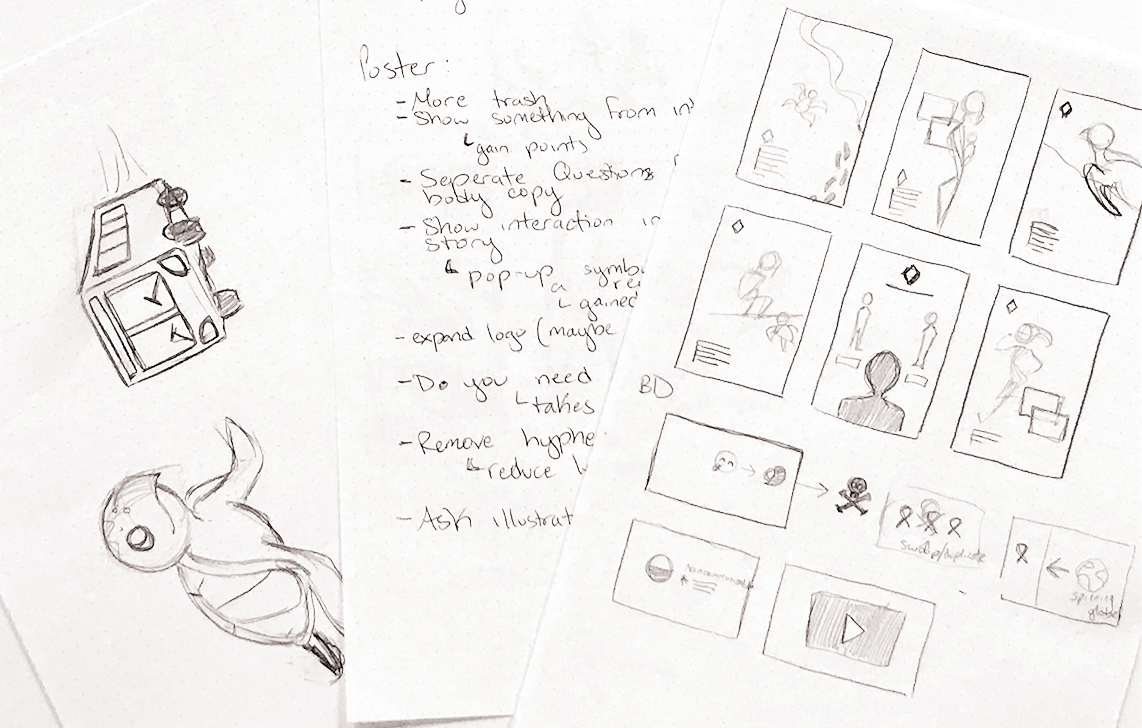 Poster:
- More trash
- Show something from in
gain points
- Seperate Questions
body copy
- Show interaction in
story
pop-up symb
a re
gained
- expand logo (maybe
- Do you need
takes
- Remove hyphe
reduce
- Ask illustrat
BD
swap/duplicate
spinning
globe